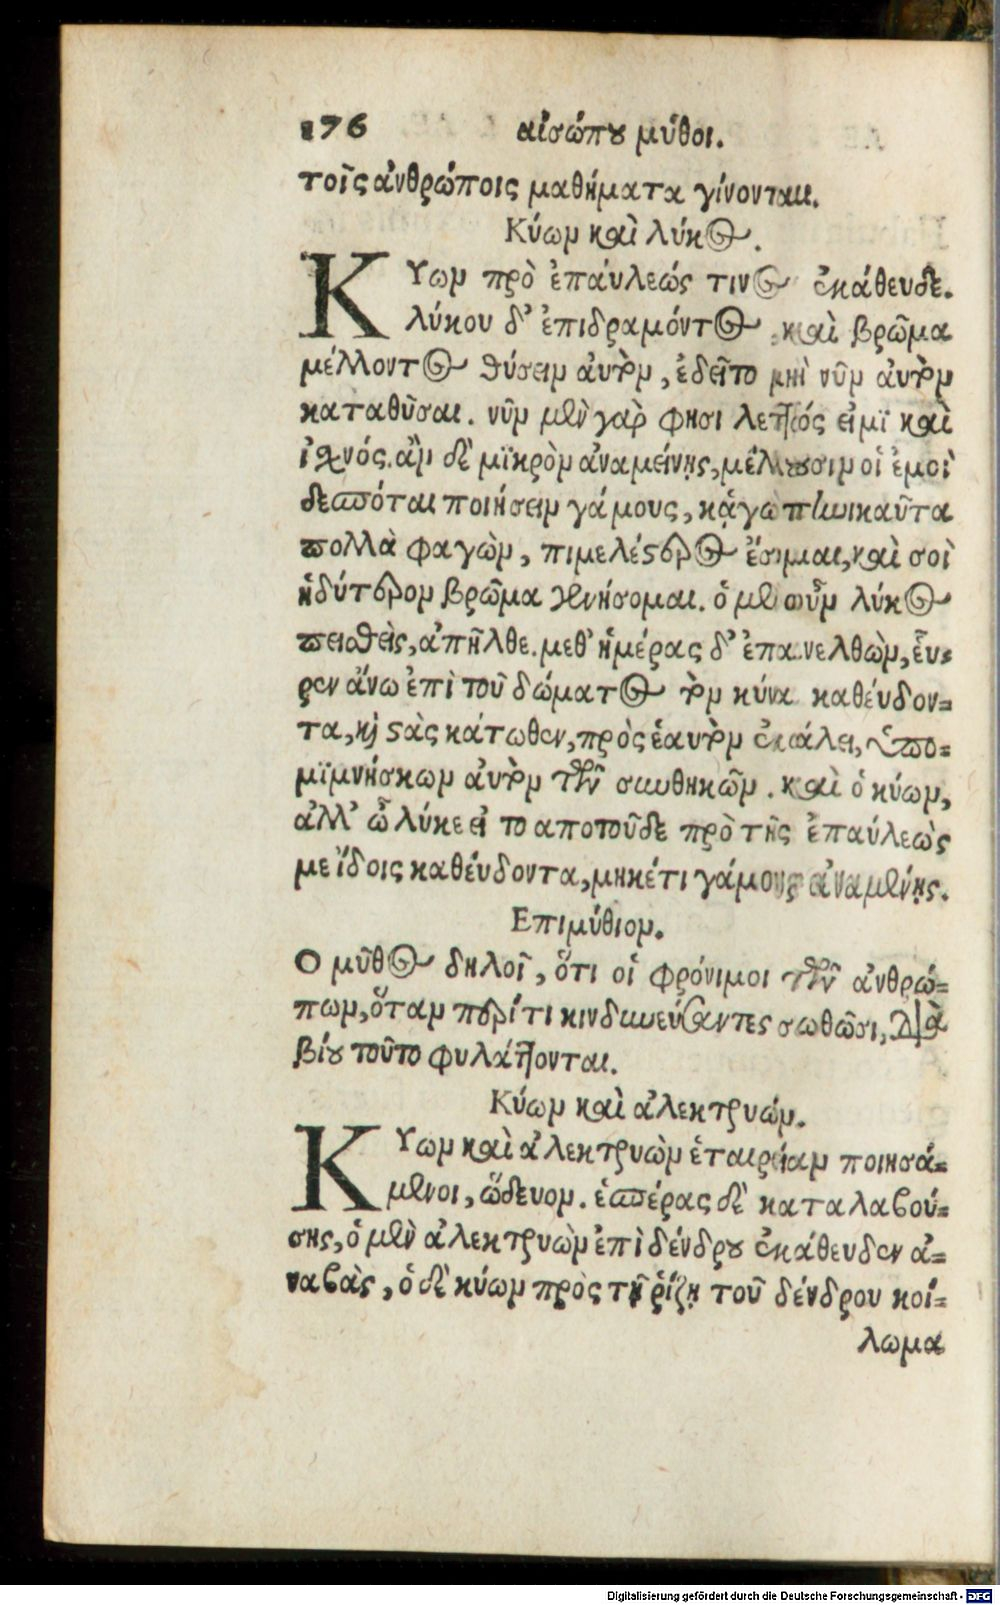 176 αἰσώπου μῦθοι.
τοῖς ἀνθρώποις μαθήματα γίνονται.
Κύων καὶ λύκος.
ΚΥων πρὸ ἐπαύλεώς τινος ἐκάθευδε.
λύκου δ' ἐπιδραμόντος καὶ βρῶμα
μέλλοντος θύσειν ἀυτὸν, ἐδεῖτο μὴ νῦν ἀυτὸν
καταθῦσαι. νῦν μὲν γὰρ φησι λεπτός εἰμὶ καὶ
ἰχνός. ἂν δὲ μικρὸν ἀναμείνῃς, μέλλουσιν οἱ ἐμοὶ
δεσπόται ποιήσειν γάμους, κᾀγὼ τηνικαῦτα
πολλὰ φαγὼν, πιμελέστερος ἔσομαι, καὶ σοὶ
ἡδύτερον βρῶμα γενήσομαι. ὁ μὲν οὖν λύκος
πεισθεὶς, ἀπῆλθε. μεθ' ἡμέρας δ' ἐπανελθὼν, εὗ-
ρεν ἄνω ἐπὶ τοῦ δώματος τὸν κύνα καθέυδον-
τα, καὶ στὰς κάτωθεν, πρὸς ἑαυτὸν ἐκάλει, ὑπο-
μιμνήσκων ἀυτὸν τῶν συνθηκῶν. καὶ ὁ κύων,
ἀλλ' ὦ λύκε εἰ το αποτοῦδε πρὸ τῆς ἐπαύλεὼς
με ἴδοις καθέυδοντα, μηκέτι γάμους ἀναμένῃς.
Επιμύθιον.
Ο μῦθος δηλοῖ, ὅτι οἱ φρόνιμοι τῶν ἀνθρώ-
πων, ὅταν περίτι κινδυνεύσαντες σωθῶσι, διὰ
βίου τοῦτο φυλάττονται.
Κύων καὶ ἀλεκτρυών.
ΚΥων καὶ ἀλεκτρυὼν ἑταιρείαν ποιησά-
μενοι, ὥδευον. ἑσπέρας δὲ καταλαβού-
σης, ὁ μὲν ἀλεκτρυὼν ἐπὶ δένδρου ἐκάθευδεν ἀ-
ναβὰς, ὁ δὲ κύων πρὸς τῇ ῥίζῃ τοῦ δένδρου κοί-
λωμα
Digitalisierung gefördert durch die Deutsche Forschungsgemeinschaft - DFG